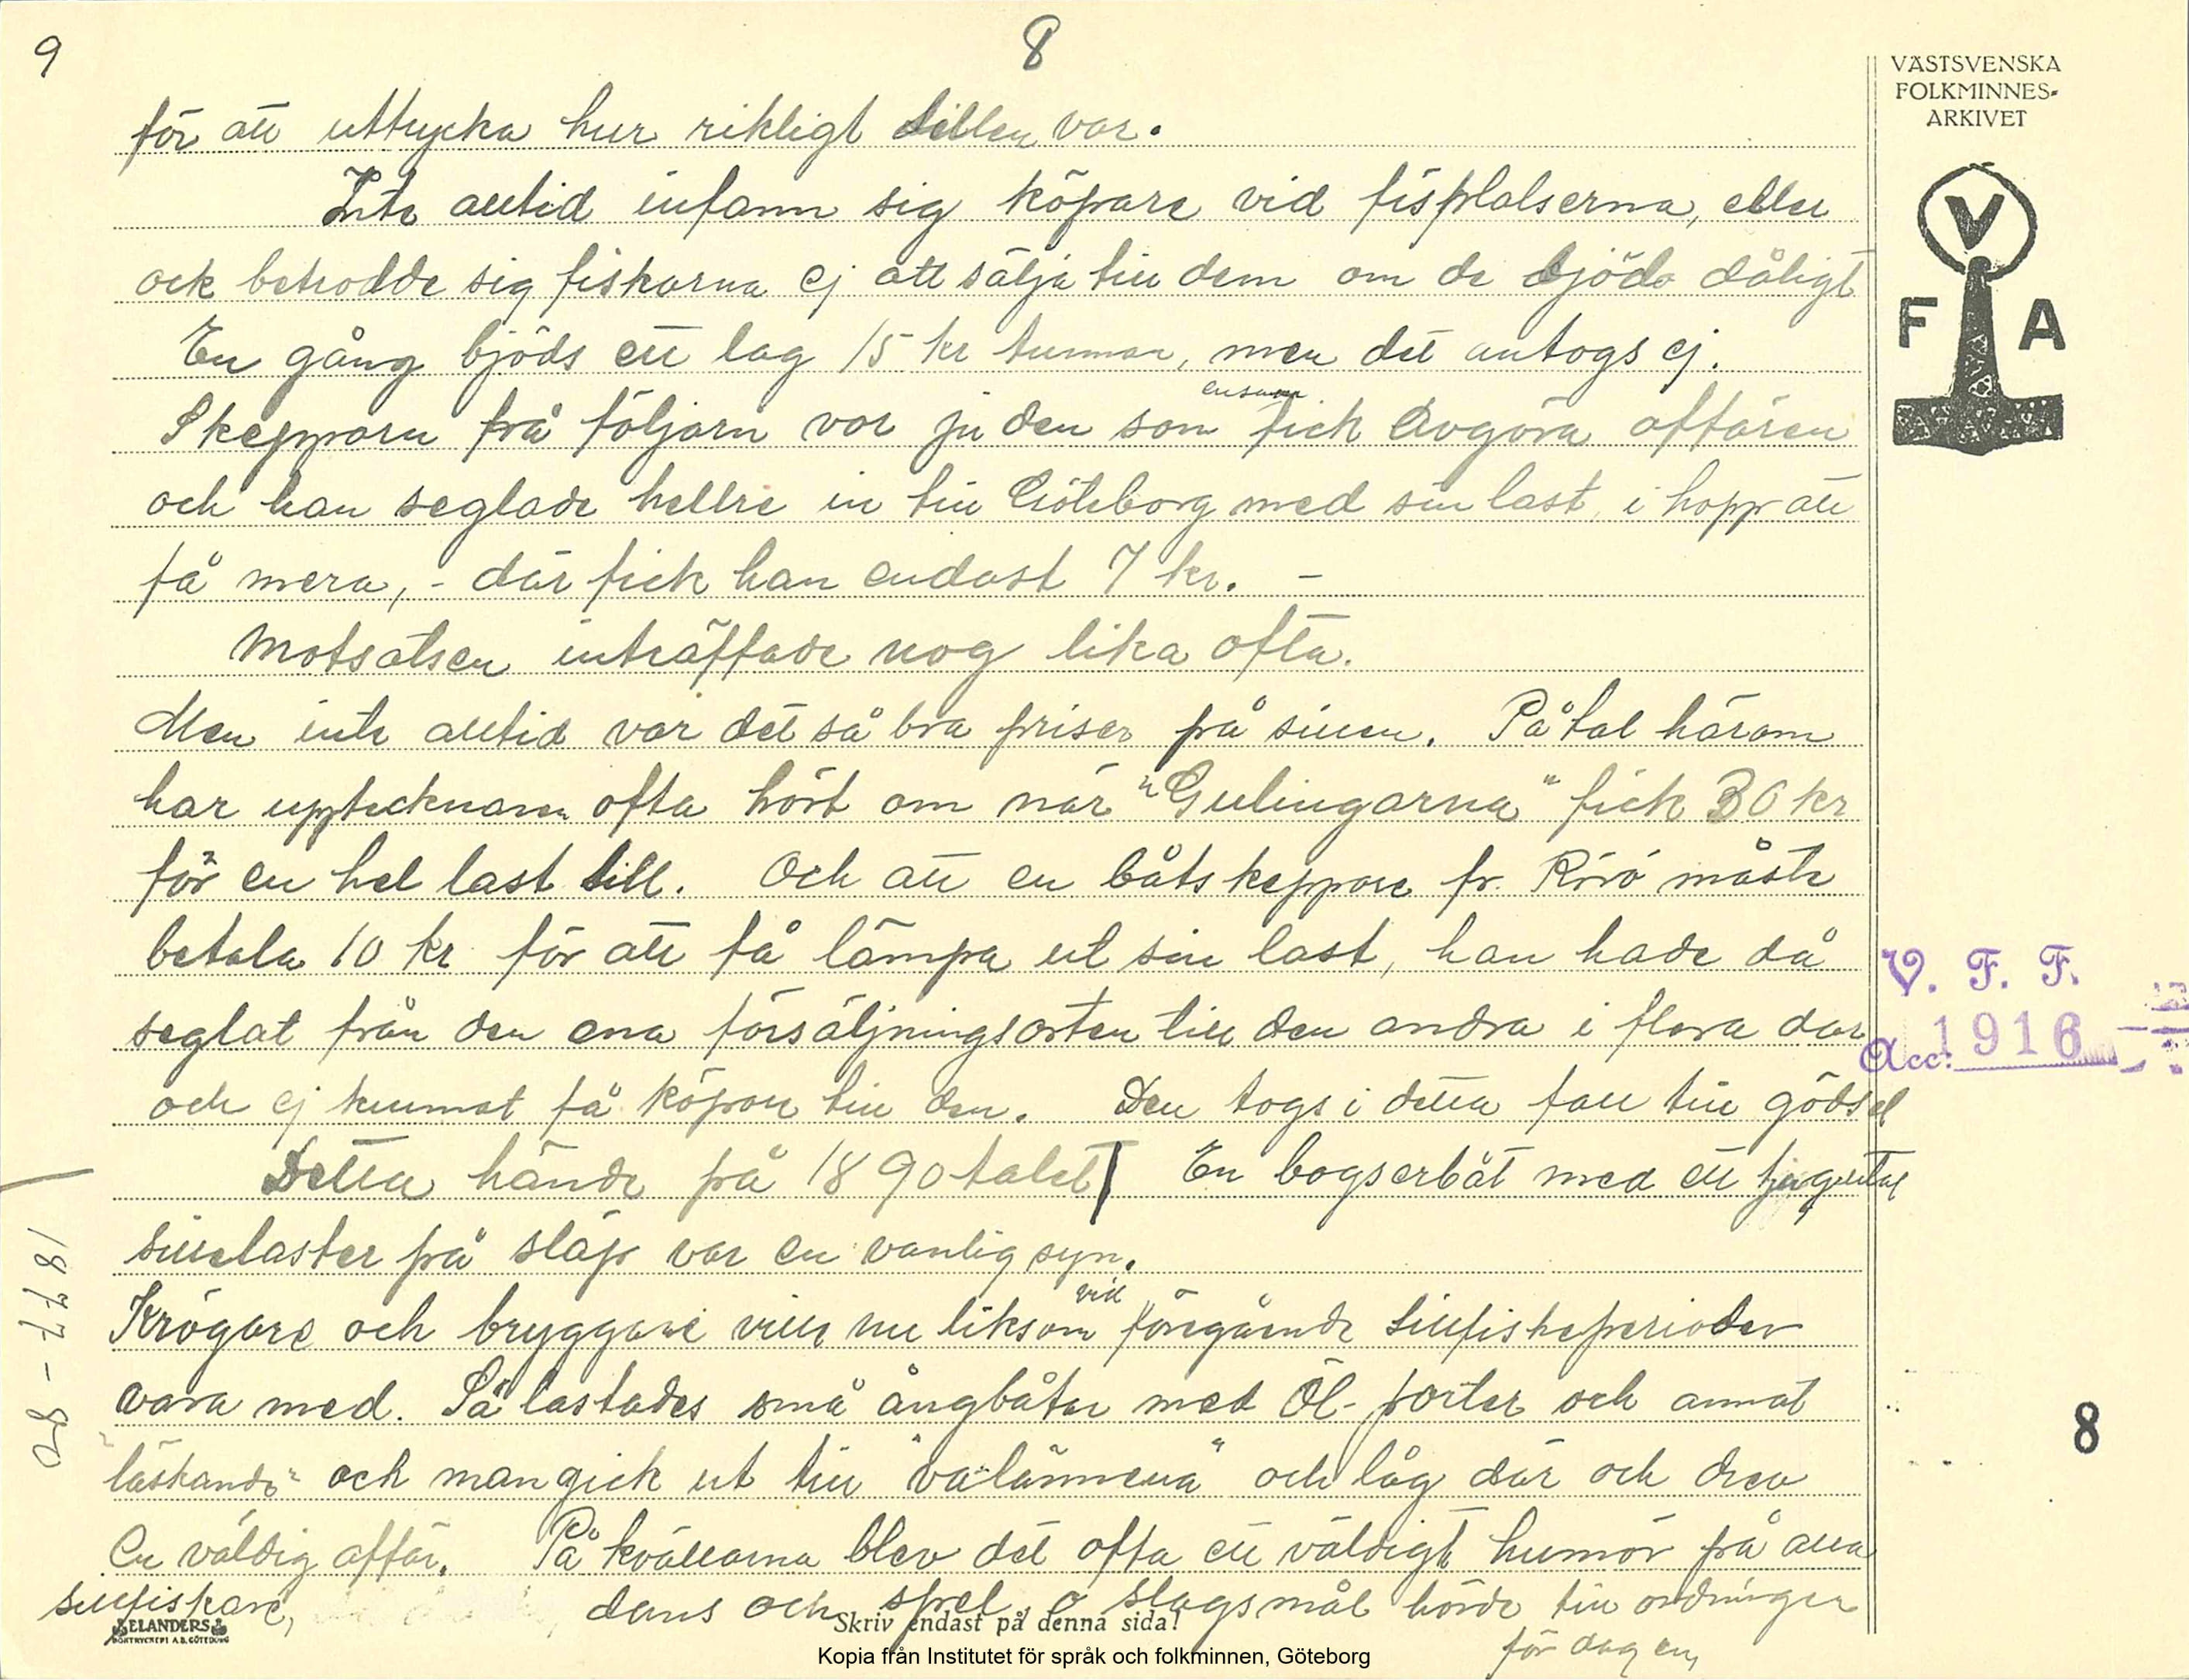 9
8
VÄSTSVENSKA
FOLKMINNES-
ARKIVET
V
F A
för att uttrycka hur rikligt sillen var.
Inte alltid infann sig köpare vid fisplatserna, eller
ock betrodde sig fiskarna ej att sälja till dem om de bjödo dåligt
En gång bjöds ett lag 15 kr tunnan, men det antogs ej.
ensam
Skepparn på följarn var ju den som fick avgöra affären
och han seglade hellre in till Göteborg med sin last, i hopp att
få mera, - där fick han endast 7 kr. -
Motsatsen inträffade nog lika ofta.
Men inte alltid var det så bra priser på sillen. På tal härom
har upptecknaren ofta hört om när "Gulingarna" fick 30 kr
för en hel last sill. Och att en båtskeppare fr. Rörö måste
betala 10 kr för att få lämpa ut sin last, han hade då
seglat från den ena försäljningsorten till den andra i flera dar
och ej kunnat få köpare till den. Den togs i detta fall till gödsel
Detta hände på 1890talet | En bogserbåt med ett tjugutal
sillelaster på släp var en vanlig syn.
vid
Krögare och bryggare ville nu liksom föregående sillfiskeperioder
vara med. Så lastades små ångbåtar med Öl- porter och annat
"läskande" och man gick ut till "valännena" och låg där och drev
en väldig affär. På kvällarna blev det ofta ett väldigt humör på alla
sillfiskare, dans och spel, o slagsmål hörde till ordningen
för dagen,
1877-90
V. F. F.
Acc: 1916
8
ELANDERS
BOKTRYCKERI A.B. GÖTEBORG
Skriv endast på denna sida!
Kopia från Institutet för språk och folkminnen, Göteborg